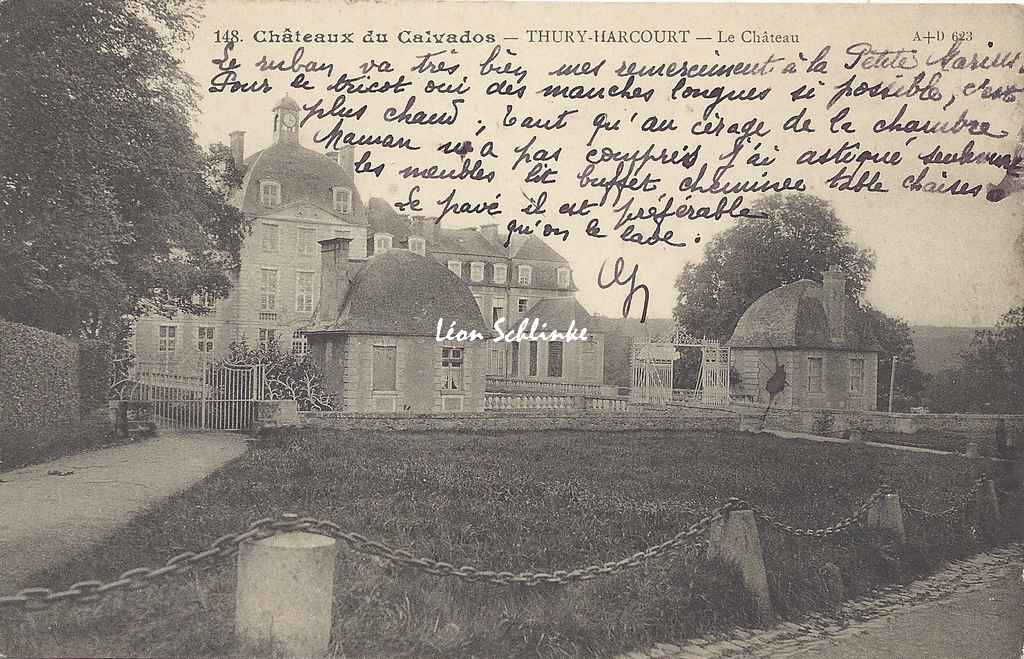 148. Châteaux du Calvados — THURY-HARCOURT — Le Château A+D 623
Le ruban va très bien mes remerciements à la Petite
Pour le tricot oui des manches longues si possible, c'est
plus chaud, Tant qu'au cirage de la chambre
Maman n'a pas compris, j'ai astiqué seulement
les meubles lit buffet cheminée table chaises
Le pavé il est préférable
qu'on le lave.
Léon Schlinke